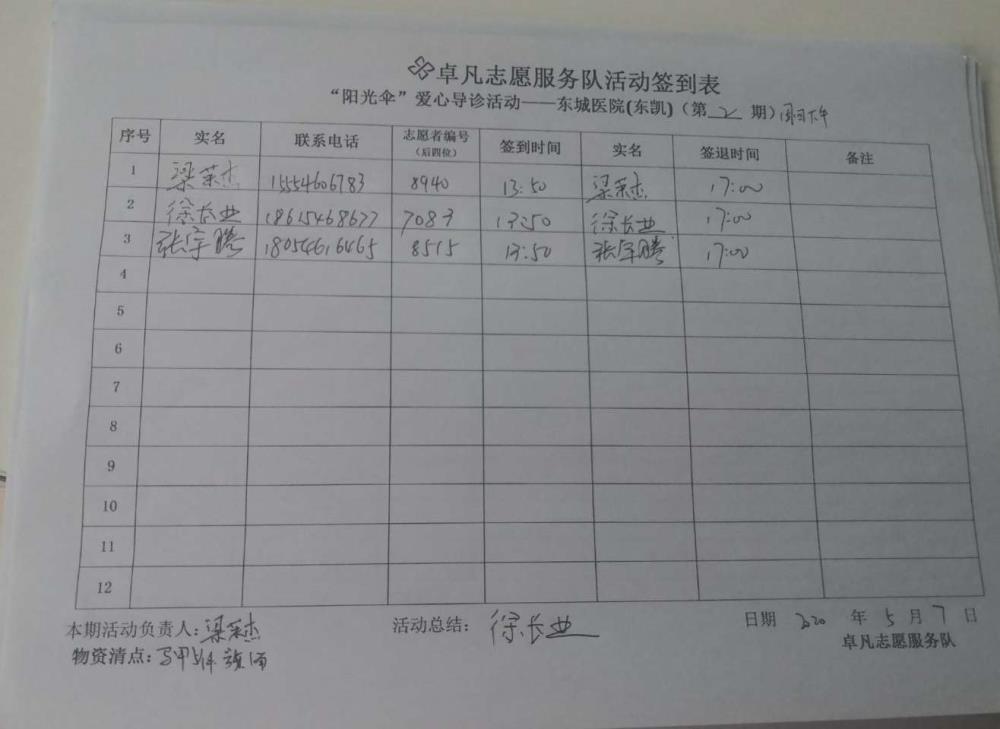 卓凡志愿服务队活动签到表
“阳光伞”爱心导诊活动——东城医院(东凯)(第 期)
序号 实名 联系电话 志愿者编号(后四位) 签到时间 实名 签退时间 备注
1 梁荣杰 15554606783 8940 13:50 梁荣杰 17:00
2 徐长业 18615468677 7083 13:50 徐长业 17:00
3 张宇腾 18054616465 8515 13:50 张宇腾 17:00
4
5
6
7
8
9
10
11
12
本期活动负责人:梁荣杰 活动总结: 徐长业 日期 2020 年 5 月 7 日
物资清点:马甲 卓凡志愿服务队